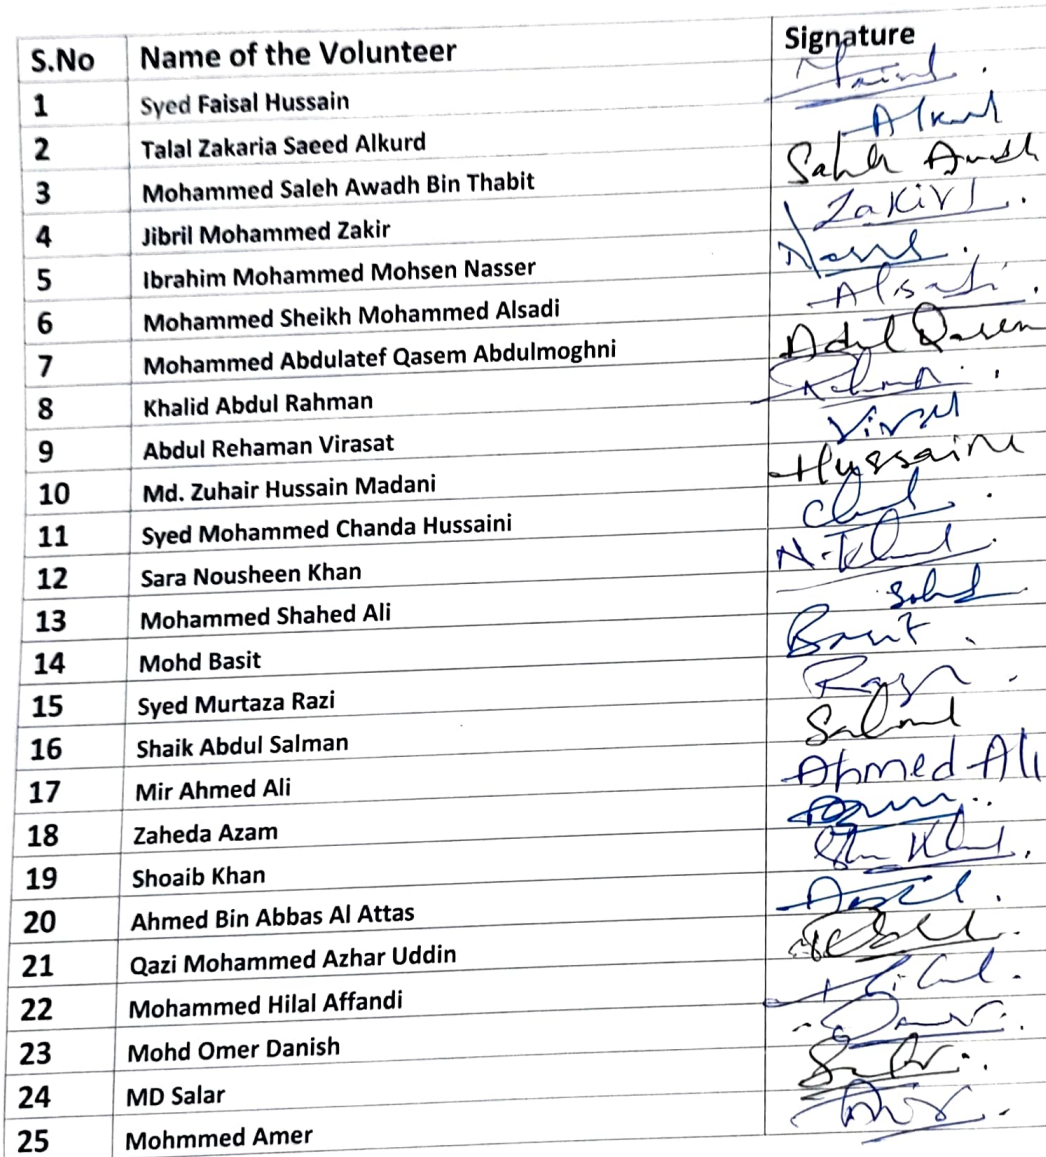 S.No Name of the Volunteer Signature
1 Syed Faisal Hussain
2 Talal Zakaria Saeed Alkurd Alkurd
3 Mohammed Saleh Awadh Bin Thabit Saleh Awadh
4 Jibril Mohammed Zakir Zakir
5 Ibrahim Mohammed Mohsen Nasser
6 Mohammed Sheikh Mohammed Alsadi Alsadi
7 Mohammed Abdulatef Qasem Abdulmoghni Abdul Qasem
8 Khalid Abdul Rahman
9 Abdul Rehaman Virasat
10 Md. Zuhair Hussain Madani Hussaini
11 Syed Mohammed Chanda Hussaini
12 Sara Nousheen Khan
13 Mohammed Shahed Ali
14 Mohd Basit Basit
15 Syed Murtaza Razi
16 Shaik Abdul Salman
17 Mir Ahmed Ali Ahmed Ali
18 Zaheda Azam
19 Shoaib Khan
20 Ahmed Bin Abbas Al Attas
21 Qazi Mohammed Azhar Uddin
22 Mohammed Hilal Affandi Hilal
23 Mohd Omer Danish
24 MD Salar
25 Mohmmed Amer